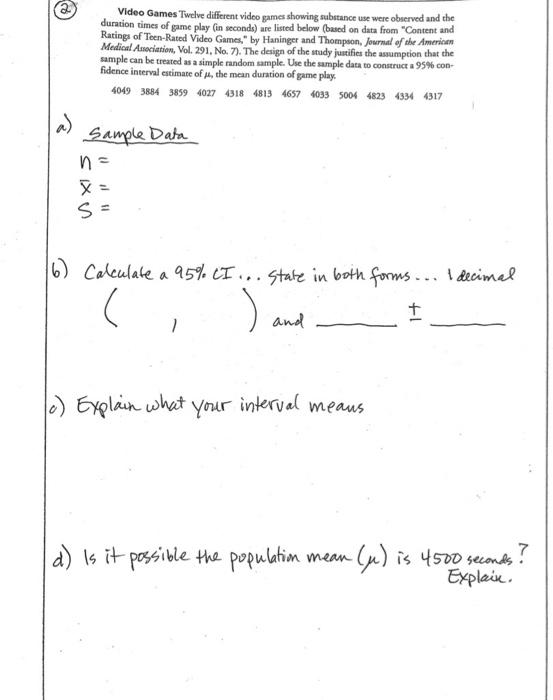 2
Video Games Twelve different video games showing substance use were observed and the
duration times of game play (in seconds) are listed below (based on data from "Content and
Ratings of Teen-Rated Video Games," by Haninger and Thompson, Journal of the American
Medical Association, Vol. 291, No. 7). The design of the study justifies the assumption that the
sample can be treated as a simple random sample. Use the sample data to construct a 95% con-
fidence interval estimate of μ, the mean duration of game play.
4049 3884 3859 4027 4318 4813 4657 4033 5004 4823 4334 4317
a) Sample Data
n =
x̄ =
S =
b) Calculate a 95% CI... State in both forms... 1 decimal
( , ) and ____ ± ____
c) Explain what your interval means
d) Is it possible the population mean (μ) is 4500 seconds?
Explain.